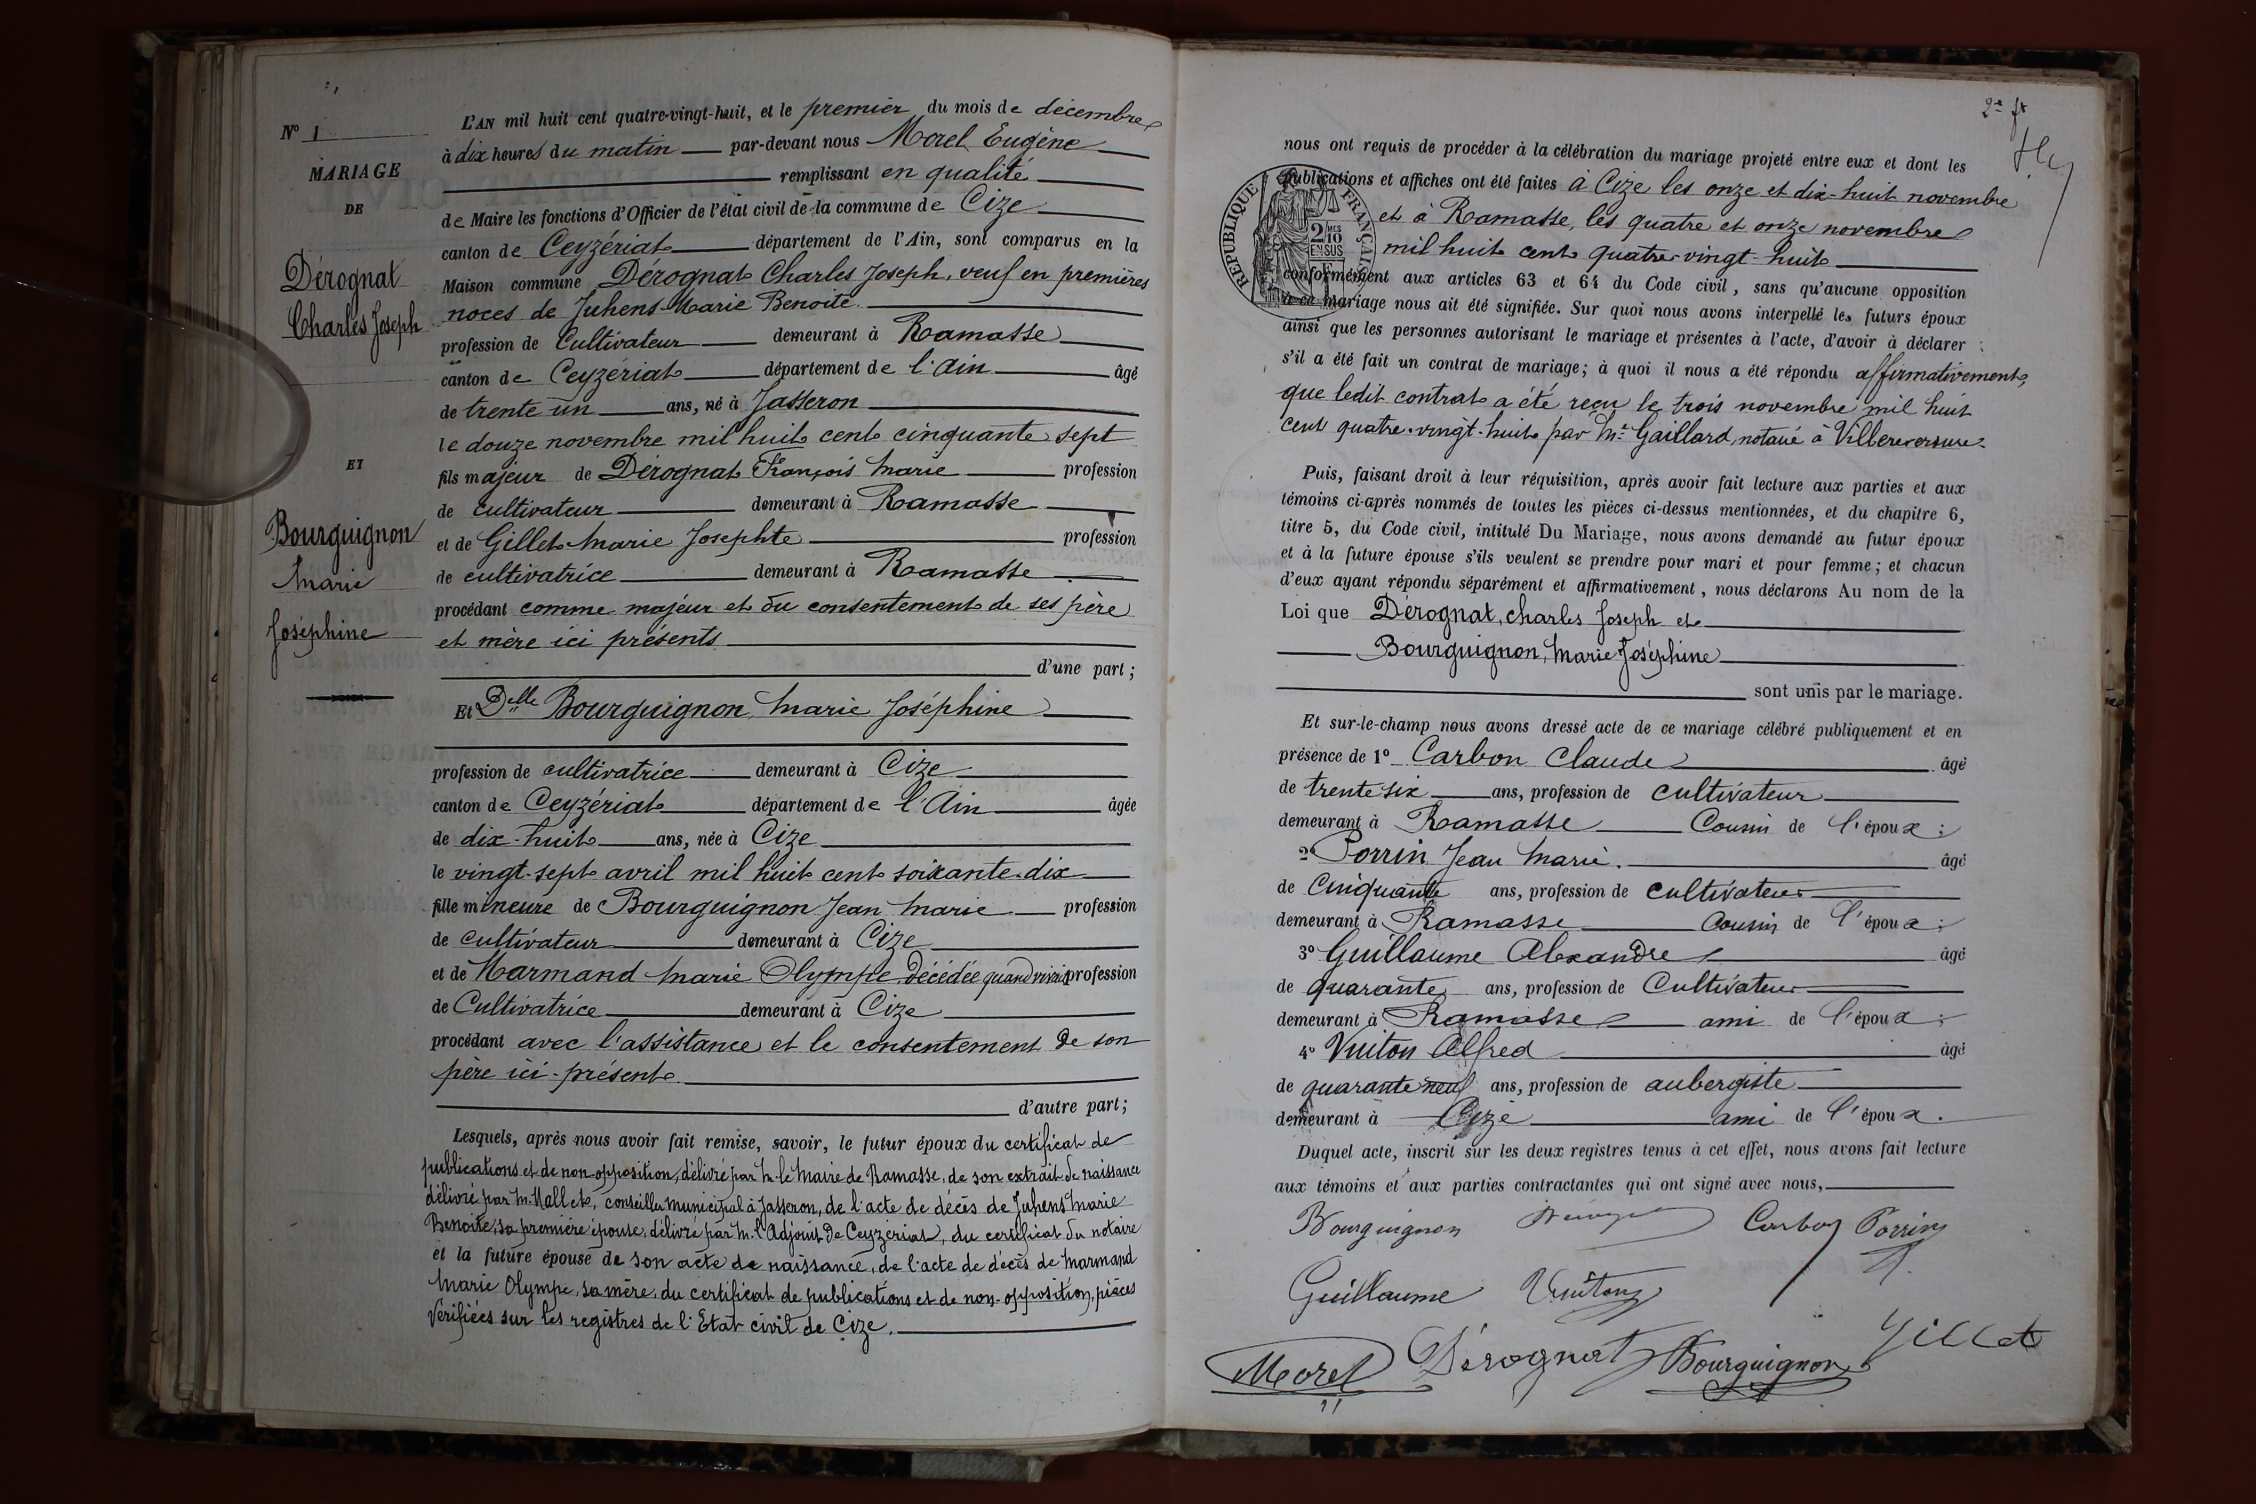 N° 1
MARIAGE
DE
Dérognat
Charles Joseph
ET
Bourguignon
Marie
Joséphine
L'AN mil huit cent quatre-vingt-huit, et le premier du mois de décembre
à dix heures du matin par-devant nous Morel Eugène
remplissant en qualité
de Maire les fonctions d'Officier de l'état civil de la commune de Cize
canton de Ceyzériat département de l'Ain, sont comparus en la
Maison commune Dérognat Charles Joseph, veuf en premières
noces de Juhens Marie Benoite
profession de Cultivateur demeurant à Ramasse
canton de Ceyzériat département de l'Ain âgé
de trente un ans, né à Jasseron
le douze novembre mil huit cent cinquante sept
fils majeur de Dérognat François Marie profession
de cultivateur demeurant à Ramasse
et de Gillet Marie Josephte profession
de cultivatrice demeurant à Ramasse
procédant comme majeur et du consentement de ses père
et mère ici présents
d'une part;
Et Delle Bourguignon, Marie Joséphine
profession de cultivatrice demeurant à Cize
canton de Ceyzériat département de l'Ain âgée
de dix-huit ans, née à Cize
le vingt-sept avril mil huit cent soixante-dix
fille mineure de Bourguignon Jean Marie profession
de cultivateur demeurant à Cize
et de Marmand Marie Olympe, décédée quand vivait profession
de Cultivatrice demeurant à Cize
procédant avec l'assistance et le consentement de son
père ici-présent
d'autre part;
Lesquels, après nous avoir fait remise, savoir, le futur époux du certificat de
publications et de non-opposition, délivré par M. le Maire de Ramasse, de son extrait de naissance
délivré par M. Mallet, conseiller municipal à Jasseron, de l'acte de décès de Juhens Marie
Benoite, sa première épouse, délivré par M. l'Adjoint de Ceyzériat, du certificat du notaire
et la future épouse de son acte de naissance, de l'acte de décès de Marmand
Marie Olympe, sa mère, du certificat de publications et de non-opposition, pièces
vérifiées sur les registres de l'Etat civil de Cize.
2e ft
nous ont requis de procéder à la célébration du mariage projeté entre eux et dont les
publications et affiches ont été faites à Cize les onze et dix-huit novembre
et à Ramasse, les quatre et onze novembre
mil huit cent quatre-vingt-huit
REPUBLIQUE FRANÇAISE
2/10
EN SUS
conformément aux articles 63 et 64 du Code civil, sans qu'aucune opposition
à ce mariage nous ait été signifiée. Sur quoi nous avons interpellé les futurs époux
ainsi que les personnes autorisant le mariage et présentes à l'acte, d'avoir à déclarer
s'il a été fait un contrat de mariage; à quoi il nous a été répondu affirmativement,
que ledit contrat a été reçu le trois novembre mil huit
cent quatre-vingt-huit par Me Gaillard, notaire à Villereversure
Puis, faisant droit à leur réquisition, après avoir fait lecture aux parties et aux
témoins ci-après nommés de toutes les pièces ci-dessus mentionnées, et du chapitre 6,
titre 5, du Code civil, intitulé Du Mariage, nous avons demandé au futur époux
et à la future épouse s'ils veulent se prendre pour mari et pour femme; et chacun
d'eux ayant répondu séparément et affirmativement, nous déclarons Au nom de la
Loi que Dérognat, Charles Joseph et
Bourguignon, Marie Joséphine
sont unis par le mariage.
Et sur-le-champ nous avons dressé acte de ce mariage célébré publiquement et en
présence de 1° Carbon Claude âgé
de trente six ans, profession de cultivateur
demeurant à Ramasse Cousin de l'époux;
2° Porrin Jean Marie. âgé
de Cinquante ans, profession de cultivateur
demeurant à Ramasse cousin de l'époux;
3° Guillaume Alexandre âgé
de quarante ans, profession de Cultivateur
demeurant à Ramasse ami de l'époux;
4° Vuiton Alfred âgé
de quarante neuf ans, profession de aubergiste
demeurant à Cize ami de l'époux.
Duquel acte, inscrit sur les deux registres tenus à cet effet, nous avons fait lecture
aux témoins et aux parties contractantes qui ont signé avec nous,
Bourguignon Carbon Porrin
Guillaume Vuiton
Morel Dérognat Bourguignon Gillet